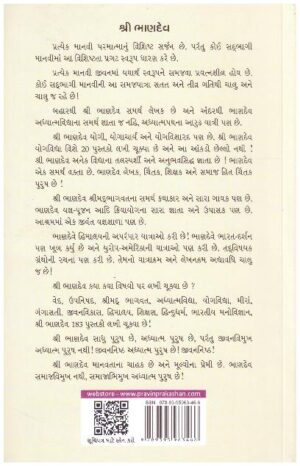 શ્રી ભાણદેવ
પ્રત્યેક માનવી પરમાત્માનું વિશિષ્ટ સર્જન છે, પરંતુ કોઈ સદ્ભાગી
માનવીમાં આ વિશિષ્ટતા પ્રગટ સ્વરૂપ ધારણ કરે છે.
પ્રત્યેક માનવી જીવનમાં યથાર્થ સ્વરૂપને સમજવા પ્રયત્નશીલ હોય છે.
કોઈ સદ્ભાગી માનવીની આ સમજયાત્રા સતત અને તીવ્ર ગતિથી ચાલુ અને
ચાલુ જ રહે છે!
બહારથી શ્રી ભાણદેવ સમર્થ લેખક છે અને અંદરથી ભાણદેવ
અધ્યાત્મવિદ્યાના સમર્થ જ્ઞાતા જ નહિ, અધ્યાત્મપથના આરૂઢ યાત્રી પણ છે.
શ્રી ભાણદેવ યોગી, યોગાચાર્ય અને યોગવિશારદ પણ છે. શ્રી ભાણદેવ
યોગવિદ્યા વિશે 20 પુસ્તકો લખી ચૂક્યા છે અને આ આંકડો છેલ્લો નથી!
શ્રી ભાણદેવ અનેક વિદ્યાના તલસ્પર્શી અને અનુભવસિદ્ધ જ્ઞાતા છે! ભાણદેવ
એક સમર્થ વક્તા છે. ભાણદેવ લેખક, ચિંતક, શિક્ષક અને સમાજ હિત ચિંતક
પુરુષ છે!
શ્રી ભાણદેવ શ્રીમદ્ભાગવતના સમર્થ કથાકાર અને સારા ગાયક પણ છે.
શ્રી ભાણદેવ યજ્ઞ-પૂજન આદિ ક્રિયાયોગના સારા જ્ઞાતા અને ઉપાસક પણ છે.
આશ્રમમાં એક જીવંત યજ્ઞશાળા પણ છે.
શ્રી ભાણદેવે હિમાલયની અપરંપાર યાત્રાઓ કરી છે! ભાણદેવે ભારત-દર્શન
પણ ખૂબ કર્યું છે અને યુરોપ-અમેરિકાની યાત્રાઓ પણ કરી છે. તદ્વિષયક
ગ્રંથોની રચના પણ કરી છે. તેમનો યાત્રાક્રમ અને લેખનક્રમ અદ્યાવધિ ચાલુ
જ છે!
શ્રી ભાણદેવ કયા કયા વિષયો પર લખી ચૂક્યા છે?
વેદ, ઉપનિષદ, શ્રીમદ્ ભાગવત, અધ્યાત્મવિદ્યા, યોગવિદ્યા, મીરાં,
ગંગાસતી, જીવનવિકાસ, હિમાલય, શિક્ષણ, હિન્દુધર્મ, ભારતીય મનોવિજ્ઞાન,
શ્રી ભાણદેવ 183 પુસ્તકો લખી ચૂક્યા છે!
શ્રી ભાણદેવ સાધુ પુરુષ છે, અધ્યાત્મ પુરુષ છે, પરંતુ જીવનવિમુખ
અધ્યાત્મ પુરુષ નથી! જીવનનિષ્ઠ અધ્યાત્મ પુરુષ છે! જીવનનિષ્ઠ!
શ્રી ભાણદેવ માનવતાના ચાહક છે અને મૂલ્યોના પ્રેમી છે. ભાણદેવ
સમાજવિમુખ નથી, સમાજાભિમુખ અધ્યાત્મ પુરુષ છે!
webstore - www.pravinprakashan.com
સૂચિપત્ર માટે સ્કેન કરો
ISBN